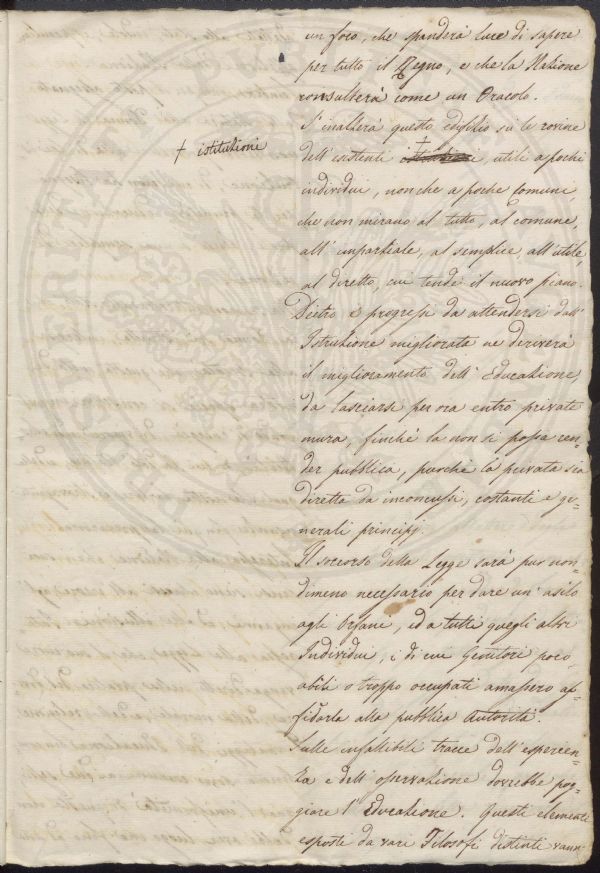 un foco, che spanderà luce di sapere
per tutto il Regno, e che la Nazione
consulterà come un Oracolo.
S'inalzerà questo edifizio sù le rovine
† istituzioni
dell'esistenti † utili a pochi
individui, nonche a poche Comuni,
che non mirano al tutto, al comune,
all'imparziale, al semplice all'utile,
al diretto, cui tende il nuovo piano.
Dietro i progressi da attendersi dall'
Istruzione migliorata ne deriverà
il miglioramento dell'Educazione,
da lasciarsi per ora entro private
mura, finchè la non si possa ren-
der pubblica, purchè la privata sia
diretta da inconcussi, costanti e ge-
nerali principj.
Il soccorso della Legge sarà pur non-
dimeno necessario per dare un'asilo
agli Orfani, ed a tutti quegli altri
Individui, i di cui Genitori poco
abili o troppo occupati amassero af-
fidarla alla pubblica Autorità.
Sulle infallibili tracce dell'esperien-
za e dell'osservazione dovrebbe pog-
giare l'Educazione. Questi elementi
esposti da vari Filosofi distinti